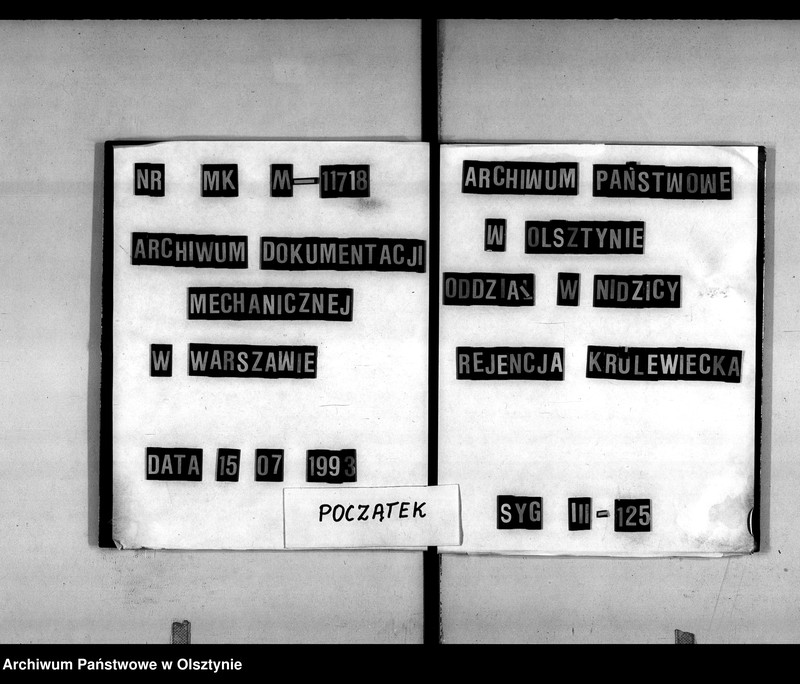 NR MK M-11718
ARCHIWUM DOKUMENTACJI
MECHANICZNEJ
W WARSZAWIE
DATA 15 07 1993
POCZĄTEK
ARCHIWUM PAŃSTWOWE
W OLSZTYNIE
ODDZIAŁ W NIDZICY
REJENCJA KRÓLEWIECKA
SYG III-125
Archiwum Państwowe w Olsztynie